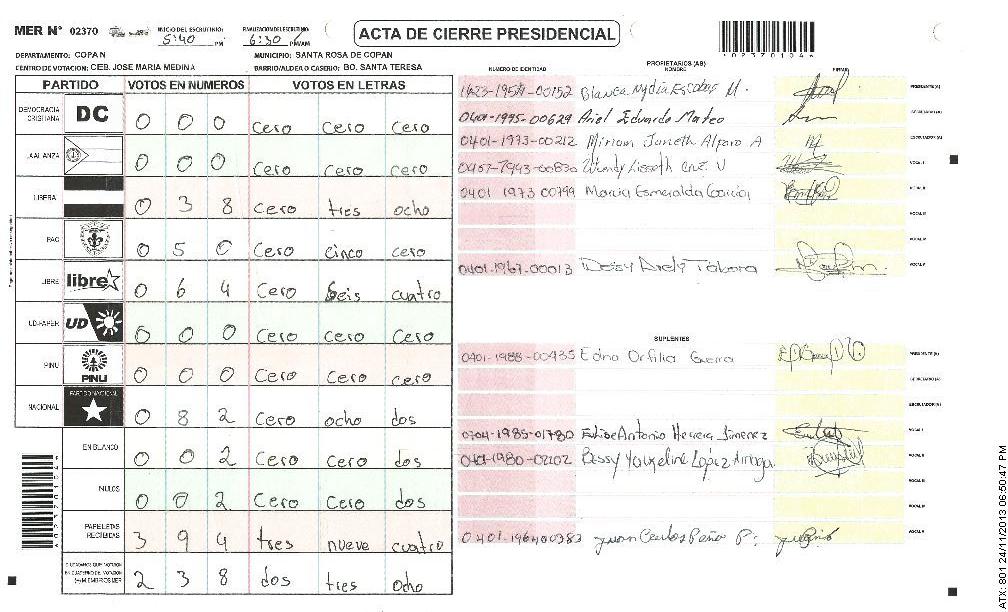 MER N° 02370 INICIO DEL ESCRUTINIO: 5:40 PM FINALIZACION DEL ESCRUTINIO: 6:30 PM/AM
ACTA DE CIERRE PRESIDENCIAL
DEPARTAMENTO: COPAN MUNICIPIO: SANTA ROSA DE COPAN
CENTRO DE VOTACION: CEB. JOSE MARIA MEDINA BARRIO/ALDEA O CASERIO: BO. SANTA TERESA
PARTIDO VOTOS EN NUMEROS VOTOS EN LETRAS
DEMOCRACIA CRISTIANA DC 0 0 0 Cero Cero Cero
ALIANZA 0 0 0 Cero Cero cero
LIBERAL 0 3 8 Cero tres ocho
PAC 0 5 0 Cero cinco cero
LIBRE libre 0 6 4 Cero Seis cuatro
UD-FAPER UD 0 0 0 Cero Cero Cero
PINU PINU 0 0 0 Cero Cero cero
NACIONAL PARTIDO NACIONAL 0 8 2 Cero ocho dos
EN BLANCO 0 0 2 Cero Cero dos
NULOS 0 0 2 Cero Cero dos
PAPELETAS RECIBIDAS 3 9 4 tres nueve cuatro
CIUDADANOS QUE VOTARON EN CUADERNO DE VOTACION (+) MIEMBROS MER 2 3 8 dos tres Ocho
NUMERO DE IDENTIDAD PROPIETARIOS (AS) NOMBRE FIRMA
Blanca Nydia Escobar M. PRESIDENTE (A)
0401-1995-00629 Ariel Eduardo Mateo SECRETARIO (A)
0401-1973-00212 Miriam Janeth Alfaro A ESCRUTADOR (A)
Wendy Lisseth Cruz V VOCAL I
0401 1973 00799 Maria Esmeralda Garcia VOCAL II
VOCAL III
VOCAL IV
0401-1967-00013 Deisy Arely Tabora VOCAL V
SUPLENTES
0401-1988-00435 Edna Orfilia Guerra PRESIDENTE (A)
SECRETARIO (A)
ESCRUTADOR (A)
0704-1985-01780 Antonio Herrera Jimenez VOCAL I
0401-1980-02102 Bessy Yaqueline Lopez VOCAL II
VOCAL III
VOCAL IV
Juan Carlos Peña P. VOCAL V
ATX: 801 24/11/2013 06:50:47 PM